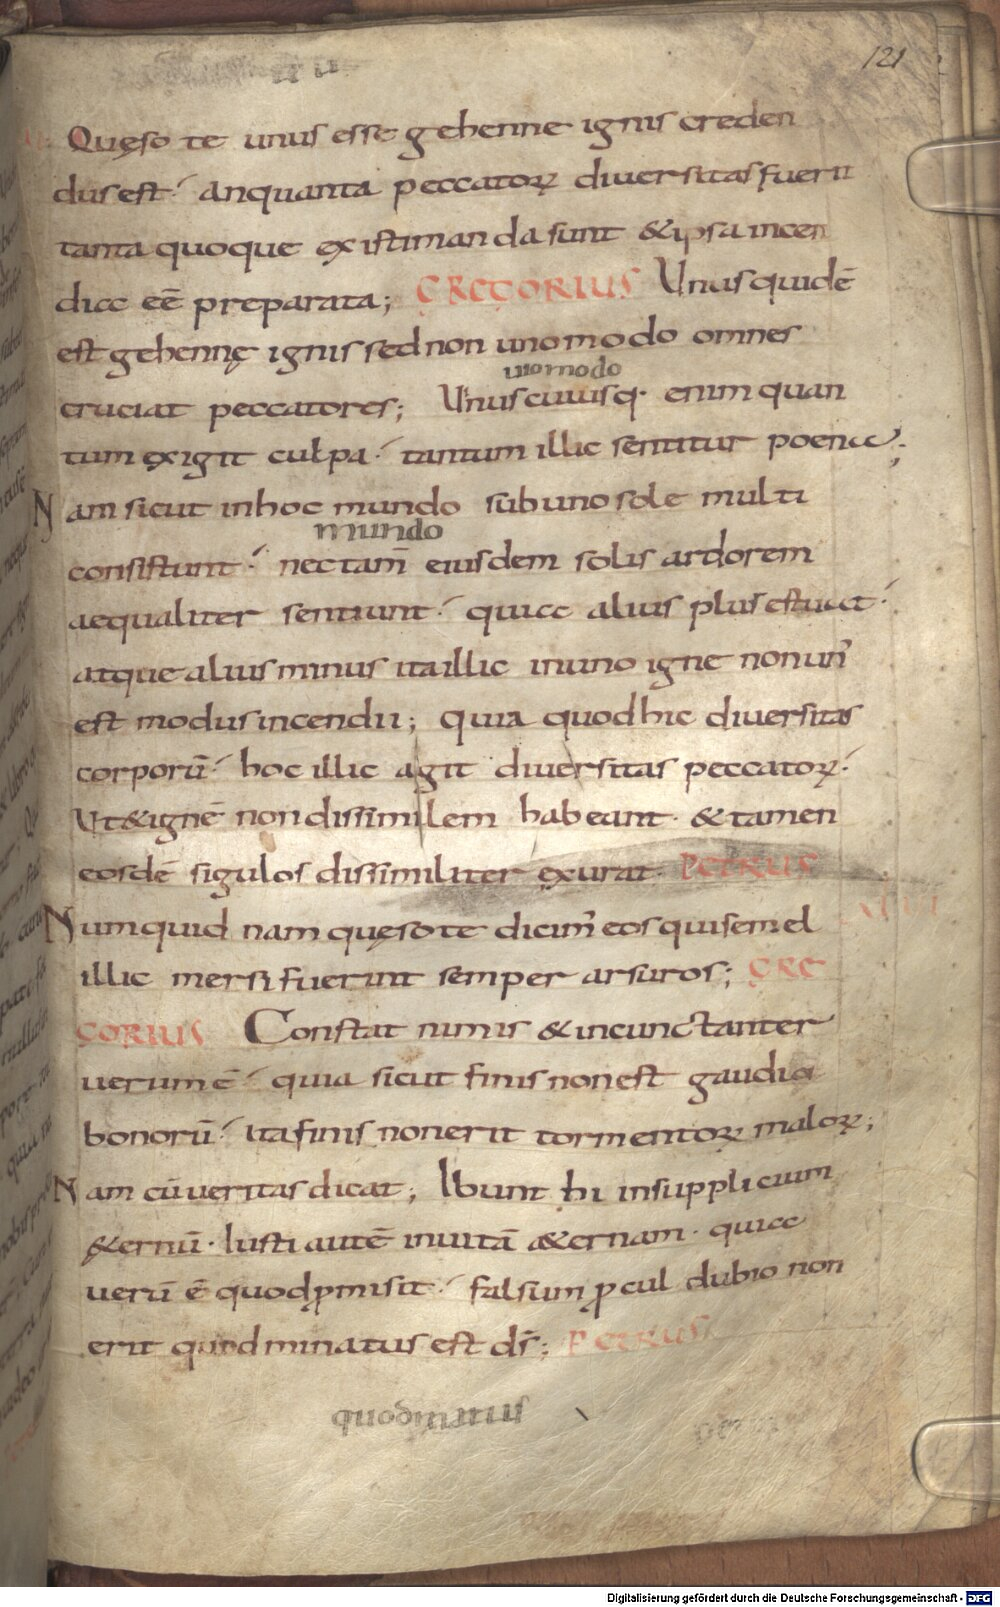 121
Quęso te unus esse gehenne ignis creden
dus est· an quanta peccatoꝝ diuersitas fuerit
tanta quoque existimanda sunt & ipsa incen
dia eē preparata; GREGORIUS Unus quidē
est gehennę ignis sed non uno modo omnes
uno modo
cruciat peccatores; Unuscuiusq· enim quan
tum exigit culpa· tantum illic sentitur poena;
Nam sicut in hoc mundo sub uno sole multi
mundo
consistunt· nec tam̄ eiusdem solis ardorem
aequaliter sentiunt· quia alius plus estuat·
atque alius minus ita illic in uno igne non un̄
est modus incendii; quia quod hic diuersitas
corporū· hoc illic agit diuersitas peccatoꝝ·
Ut & ignē non dissimilem habeant· & tamen
eosdē sigulos dissimiliter exurat· PETRUS
Numquid nam quęso te dicim̄ eos qui semel
illic mersi fuerint semper arsuros; GRE
GORIUS Constat nimis & incunctanter
uerum ē· quia sicut finis non est gaudia
bonorū· ita finis non erit tormentoꝝ maloꝝ;
Nam cū ueritas dicat; Ibunt hi in supplicium
&ernū· Iusti autē in uitā a&ernam· quia
uerū ē quod ꝓmisit· falsum ꝓcul dubio non
erit quod minatus est ds̄; PETRUS
quod minatus
Digitalisierung gefördert durch die Deutsche Forschungsgemeinschaft - DFG